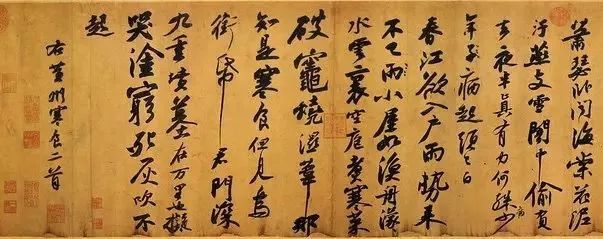 蕭瑟臥聞海棠花泥
汙燕支雪闇中偷負
去夜半真有力何殊病少
年子病起頭已白
春江欲入戶雨勢來
不已雨小屋如漁舟濛濛
水雲裏空庖煮寒菜
破竈燒濕葦那
知是寒食但見烏
銜帋君門深
九重墳墓在万里也擬
哭塗窮死灰吹不
起
右黃州寒食二首